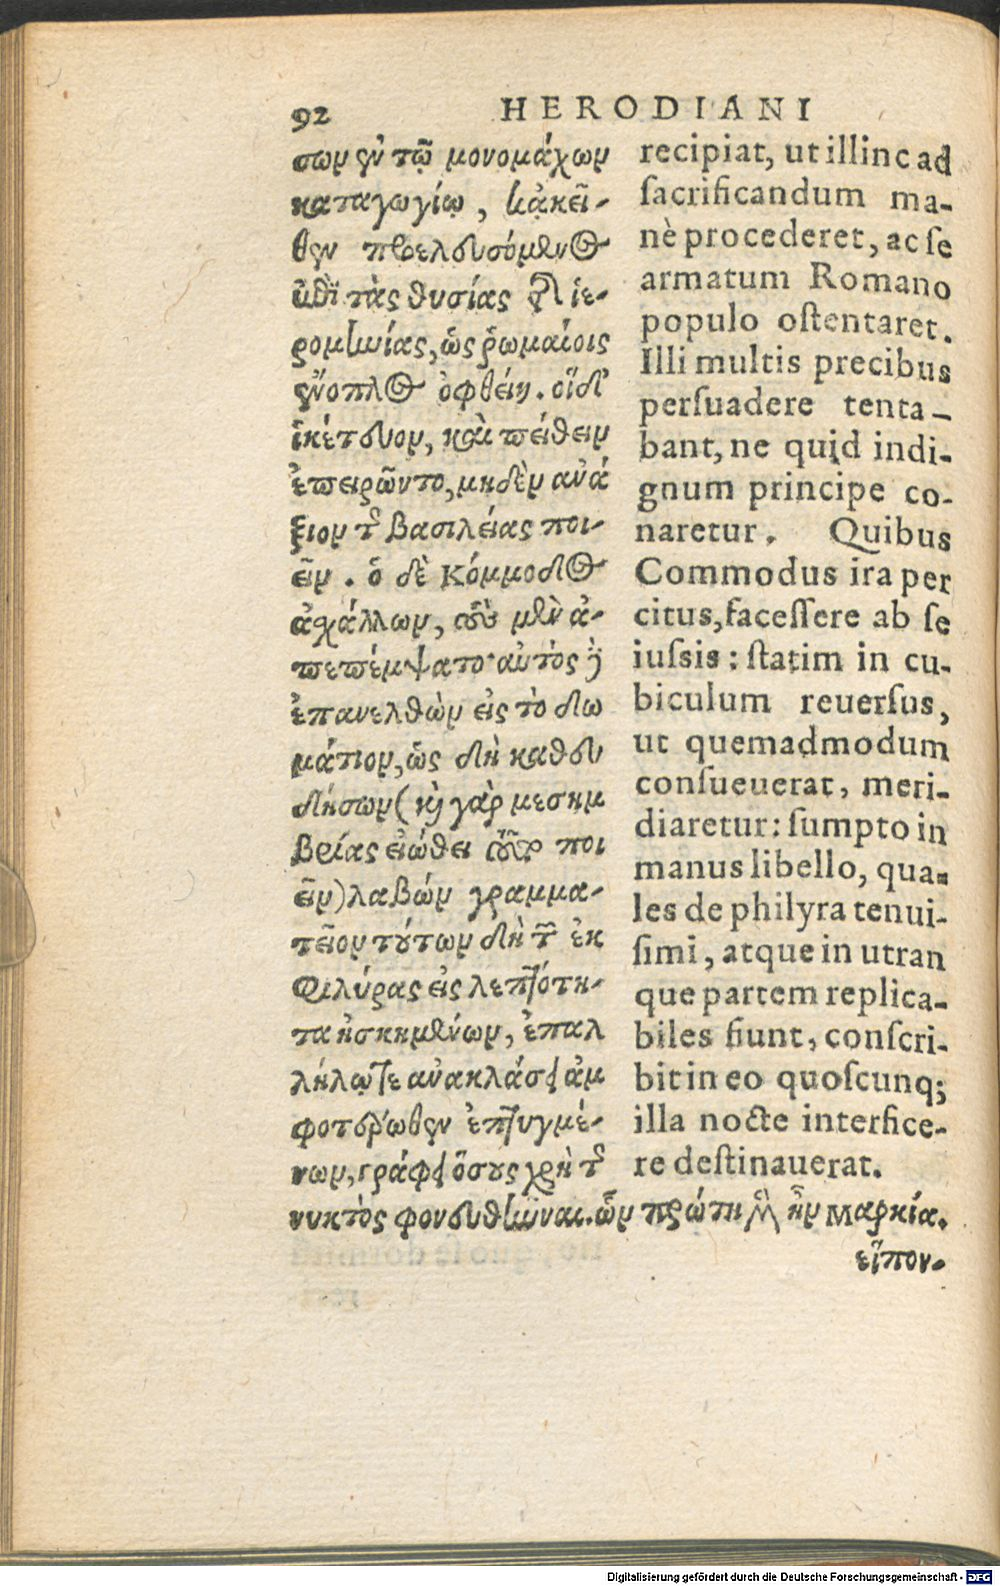 92 HERODIANI
σων ἐν τῷ μονομάχων
καταγωγίῳ, κἀκεῖ-
θεν προελευσόμενος
ἐπὶ τὰς θυσίας τῆς ἱε-
ρομηνίας, ὡς ῥωμαίοις
ἔνοπλος ὀφθείη. οἵδ᾽
ἱκέτευον, καὶ πείθειν
ἐπειρῶντο, μηδὲν ἀνά
ξιον τῆς βασιλείας ποι-
εῖν. ὁ δὲ Κόμμοδος
ἀσχάλλων, τοὺς μὲν ἀ-
πεπέμψατο· αὐτὸς δὲ
ἐπανελθὼν εἰς τὸ δω
μάτιον, ὡς δὴ καθευ
δήσων (καὶ γὰρ μεσημ
βρίας εἰώθει τοῦτο ποι
εῖν) λαβὼν γραμμα-
τεῖον τούτων δὴ τῶν ἐκ
Φιλύρας εἰς λεπτότη-
τα ἠσκημένων, ἐπαλ
λήλῳ τε ἀνακλάσει ἀμ
φοτέρωθεν ἐπτυγμέ-
νων, γράφει ὅσους χρὴ τῆς
νυκτὸς φονευθῆναι. ὧν πρώτη μὲν ἦν Μαρκία.
εἶπον-
recipiat, ut illinc ad
sacrificandum ma-
nè procederet, ac se
armatum Romano
populo ostentaret.
Illi multis precibus
persuadere tenta-
bant, ne quid indi-
gnum principe co-
naretur. Quibus
Commodus ira per
citus, facessere ab se
iussis: statim in cu-
biculum reuersus,
ut quemadmodum
consueuerat, meri-
diaretur: sumpto in
manus libello, qua-
les de philyra tenui-
simi, atque in utran
que partem replica-
biles fiunt, conscri-
bit in eo quoscunq;
illa nocte interfice-
re destinauerat.
Digitalisierung gefördert durch die Deutsche Forschungsgemeinschaft - DFG